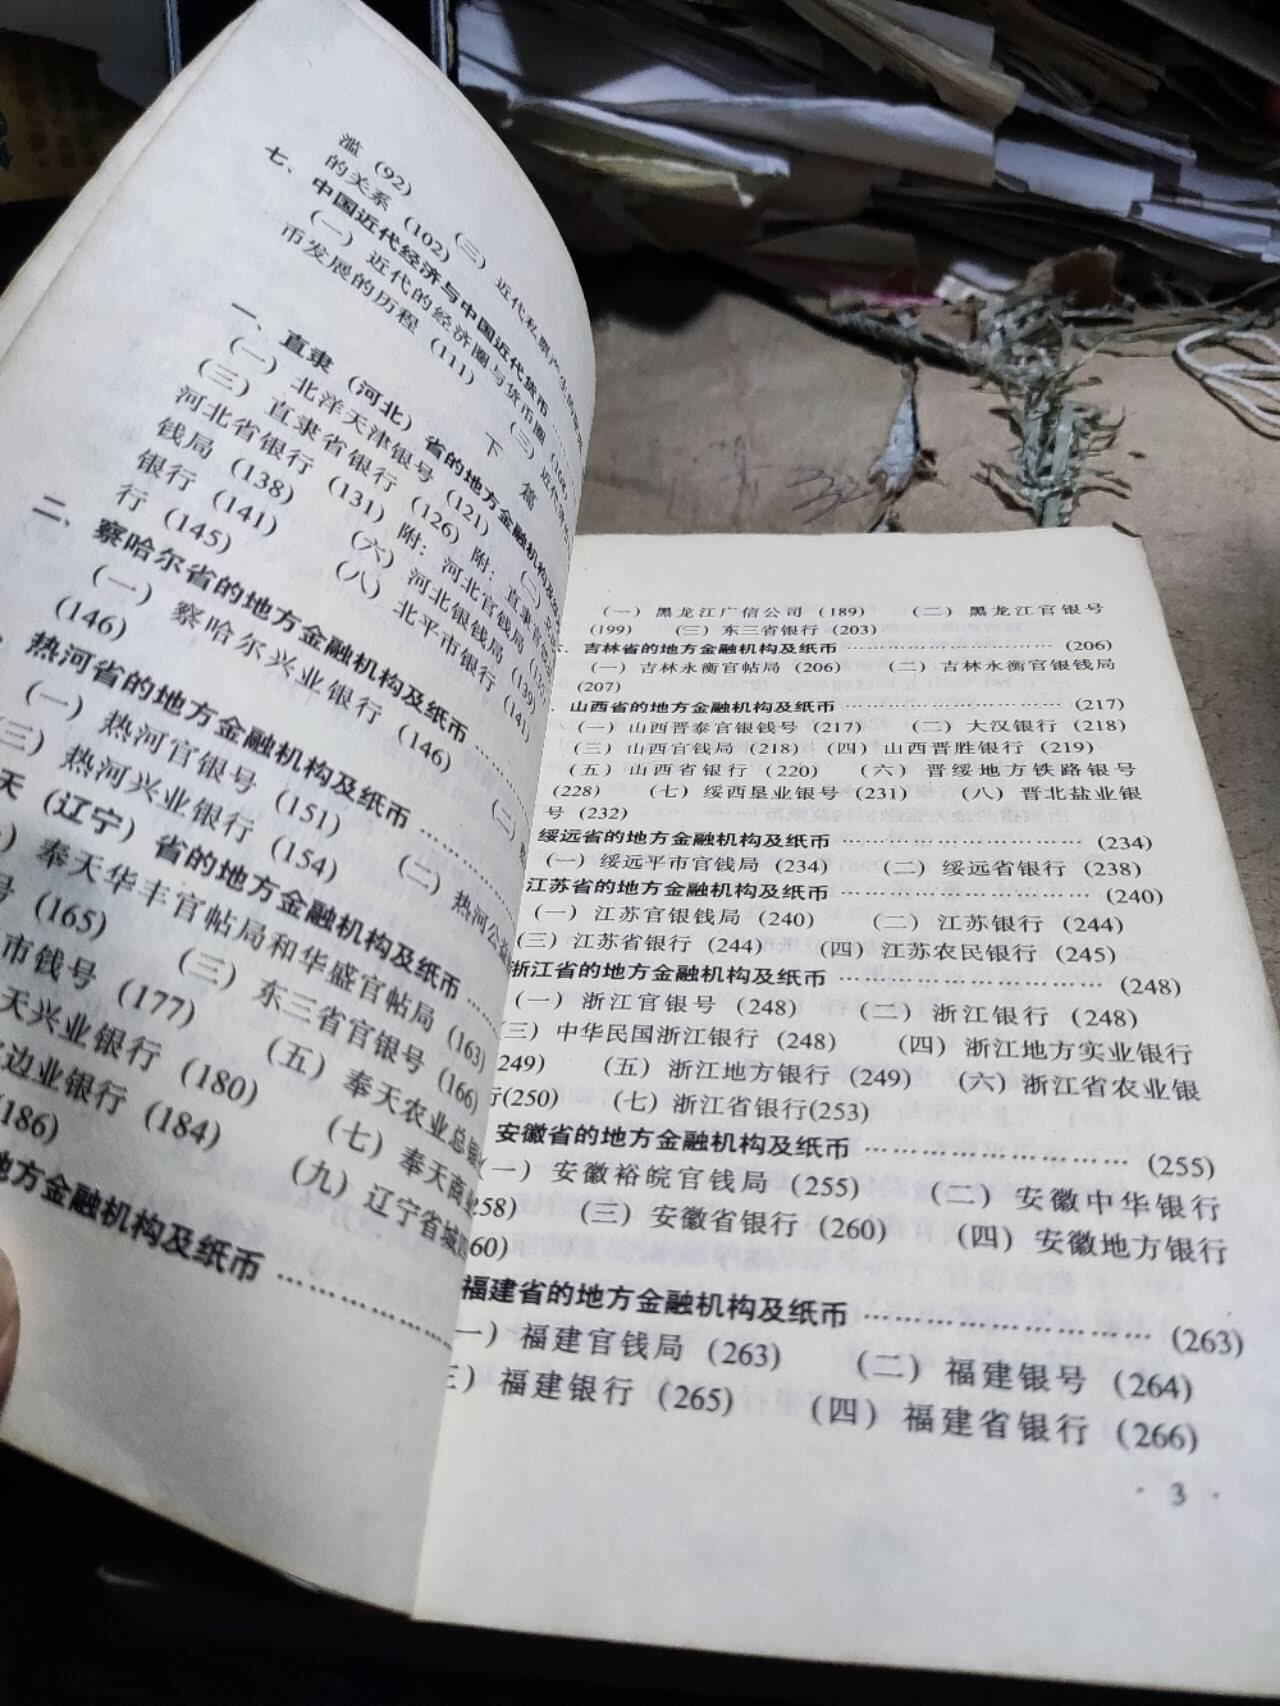 滥 (92) (三) 近代私票产生的
的关系 (102)
七、中国近代经济与中国近代货币 ……
(一) 近代的经济圈与货币圈
币发展的历程 (111)
下 篇
一、直隶 (河北) 省的地方金融机构及纸币
(一) 北洋天津银号 (121) (二)
(三) 直隶省银行 (126) 附: 直隶官
河北省银行 (131) 附: 河北官钱局 (135)
钱局 (138) (六) 河北银钱局 (139)
银行 (141) (八) 北平市银行 (141)
行 (145)
二、察哈尔省的地方金融机构及纸币 ……
(一) 察哈尔兴业银行 (146) (二)
(146)
热河省的地方金融机构及纸币 ……
(一) 热河官银号 (151) (二) 热河公益
(三) 热河兴业银行 (154)
天 (辽宁) 省的地方金融机构及纸币 ……
奉天华丰官帖局和华盛官帖局 (163)
号 (165) (三) 东三省官银号 (166)
市钱号 (177) (五) 奉天农业总银
天兴业银行 (180) (七) 奉天商业
边业银行 (184) (九) 辽宁省城
(186)
地方金融机构及纸币 ……
(一) 黑龙江广信公司 (189) (二) 黑龙江官银号
(199) (三) 东三省银行 (203)
六、吉林省的地方金融机构及纸币 …… (206)
(一) 吉林永衡官帖局 (206) (二) 吉林永衡官银钱局
(207)
、山西省的地方金融机构及纸币 …… (217)
(一) 山西晋泰官银钱号 (217) (二) 大汉银行 (218)
(三) 山西官钱局 (218) (四) 山西晋胜银行 (219)
(五) 山西省银行 (220) (六) 晋绥地方铁路银号
(228) (七) 绥西垦业银号 (231) (八) 晋北盐业银
号 (232)
绥远省的地方金融机构及纸币 …… (234)
(一) 绥远平市官钱局 (234) (二) 绥远省银行 (238)
江苏省的地方金融机构及纸币 …… (240)
(一) 江苏官银钱局 (240) (二) 江苏银行 (244)
(三) 江苏省银行 (244) (四) 江苏农民银行 (245)
浙江省的地方金融机构及纸币 …… (248)
(一) 浙江官银号 (248) (二) 浙江银行 (248)
(三) 中华民国浙江银行 (248) (四) 浙江地方实业银行
(249) (五) 浙江地方银行 (249) (六) 浙江省农业银
行(250) (七) 浙江省银行(253)
安徽省的地方金融机构及纸币 …… (255)
(一) 安徽裕皖官钱局 (255) (二) 安徽中华银行
258) (三) 安徽省银行 (260) (四) 安徽地方银行
60)
福建省的地方金融机构及纸币 …… (263)
(一) 福建官钱局 (263) (二) 福建银号 (264)
(三) 福建银行 (265) (四) 福建省银行 (266)
· 3 ·